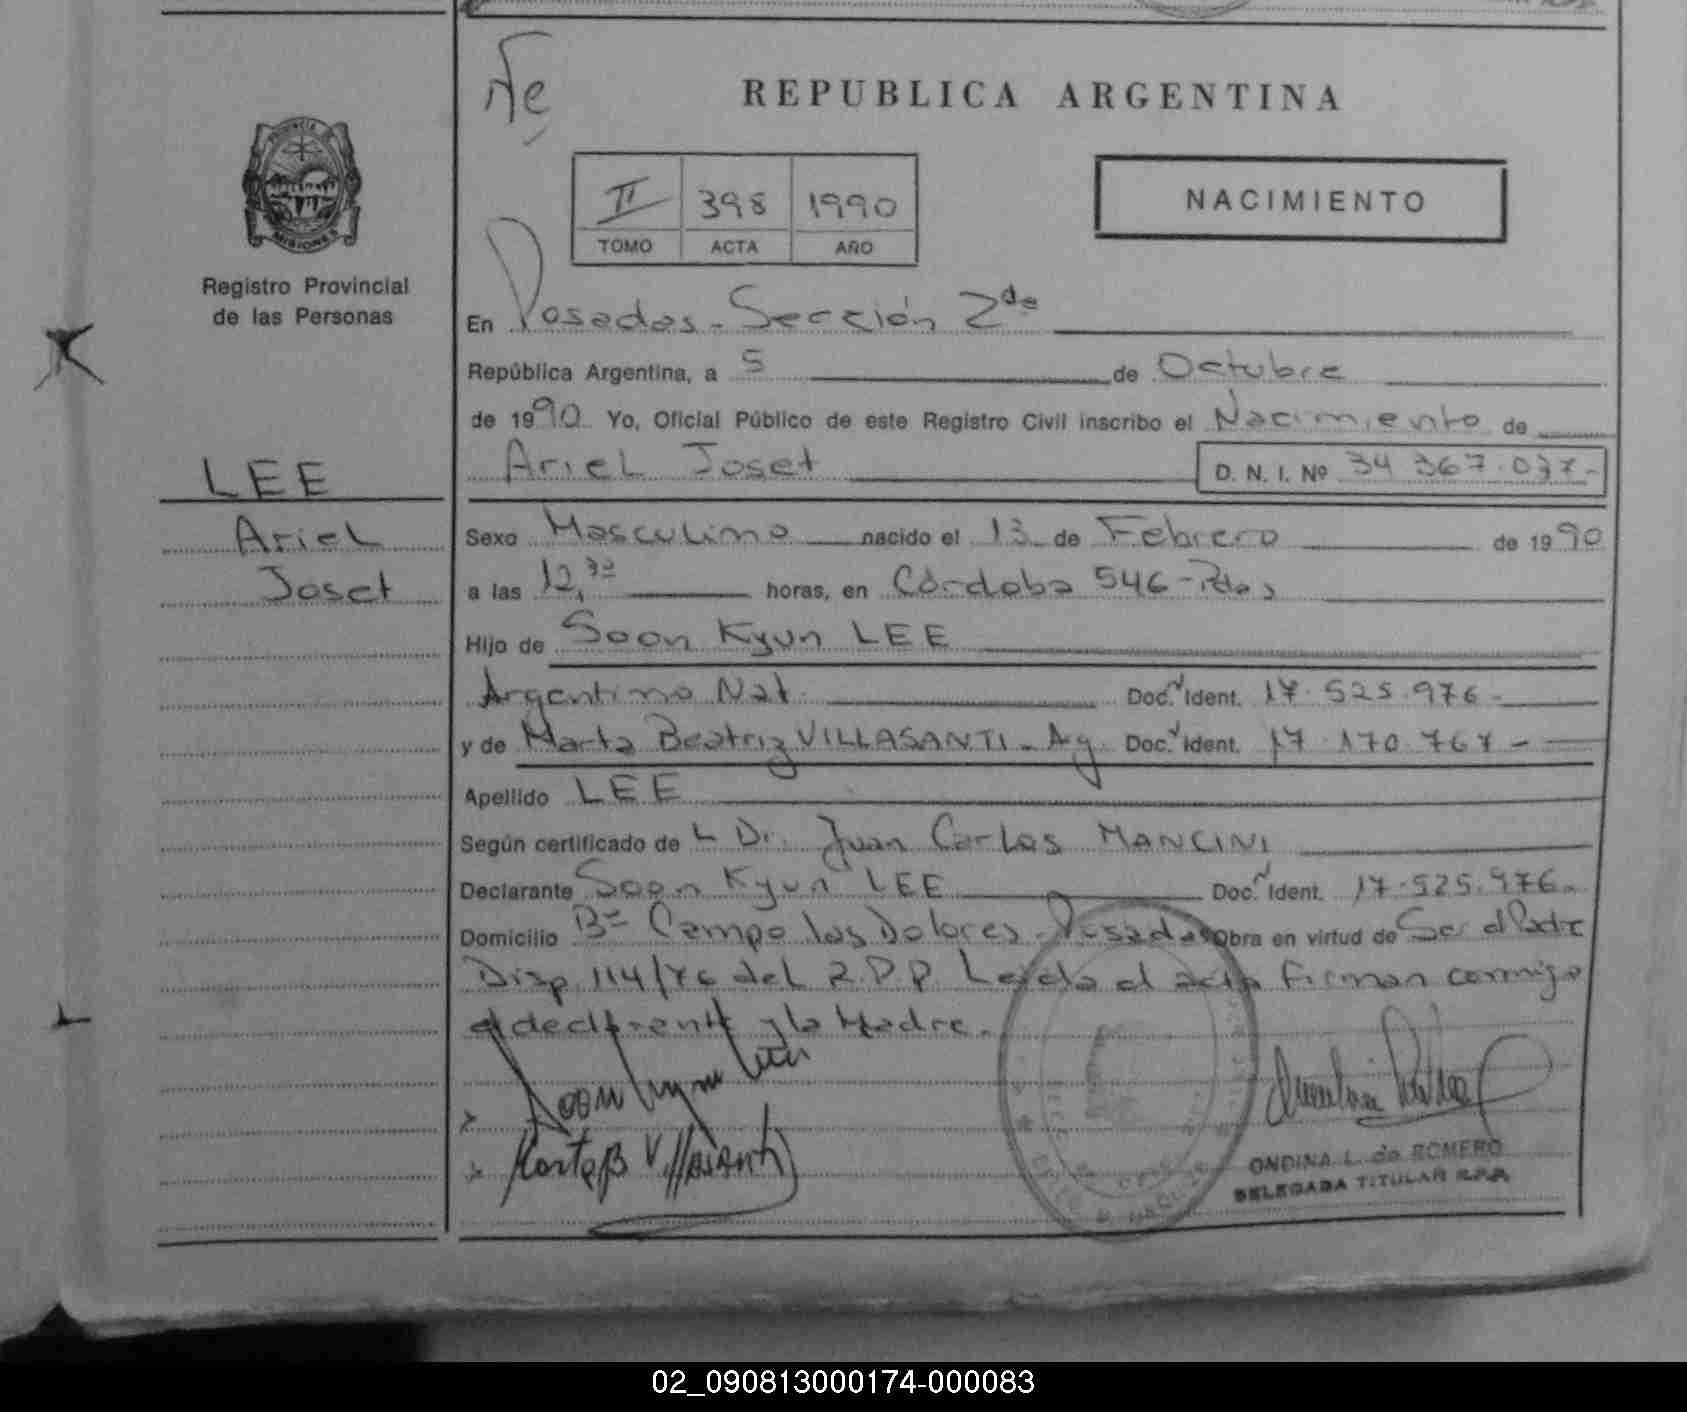 Ne
REPUBLICA ARGENTINA
PROVINCIA DE
MISIONES
II 398 1990
TOMO ACTA AÑO
NACIMIENTO
Registro Provincial
de las Personas
En Posadas - Sección 2da
República Argentina, a 5 de Octubre
de 1990 Yo, Oficial Público de este Registro Civil inscribo el Nacimiento de
LEE
Ariel Joset D. N. I. Nº 34 367.037-
Ariel
Joset
Sexo Masculino nacido el 13 de Febrero de 1990
a las 12,30 horas, en Córdoba 546-Pdas
Hijo de Soon Kyun LEE
Argentino Nat. Doc. Ident. 17.525.976-
y de Marta Beatriz VILLASANTI - Ag. Doc. Ident. 17.170.767-
Apellido LEE
Según certificado de L Dr. Juan Carlos MANCINI
Declarante Soon Kyun LEE Doc. Ident. 17.525.976-
Domicilio Bº Campo las Dolores - Posadas Obra en virtud de Ser el Padre
Disp. 114/76 del R.P.P. Leida el acta firman conmigo
el declarante y la Madre.
Marta B Villasanti
ONDINA L. de ROMERO
DELEGADA TITULAR R.P.P.
02_090813000174-000083